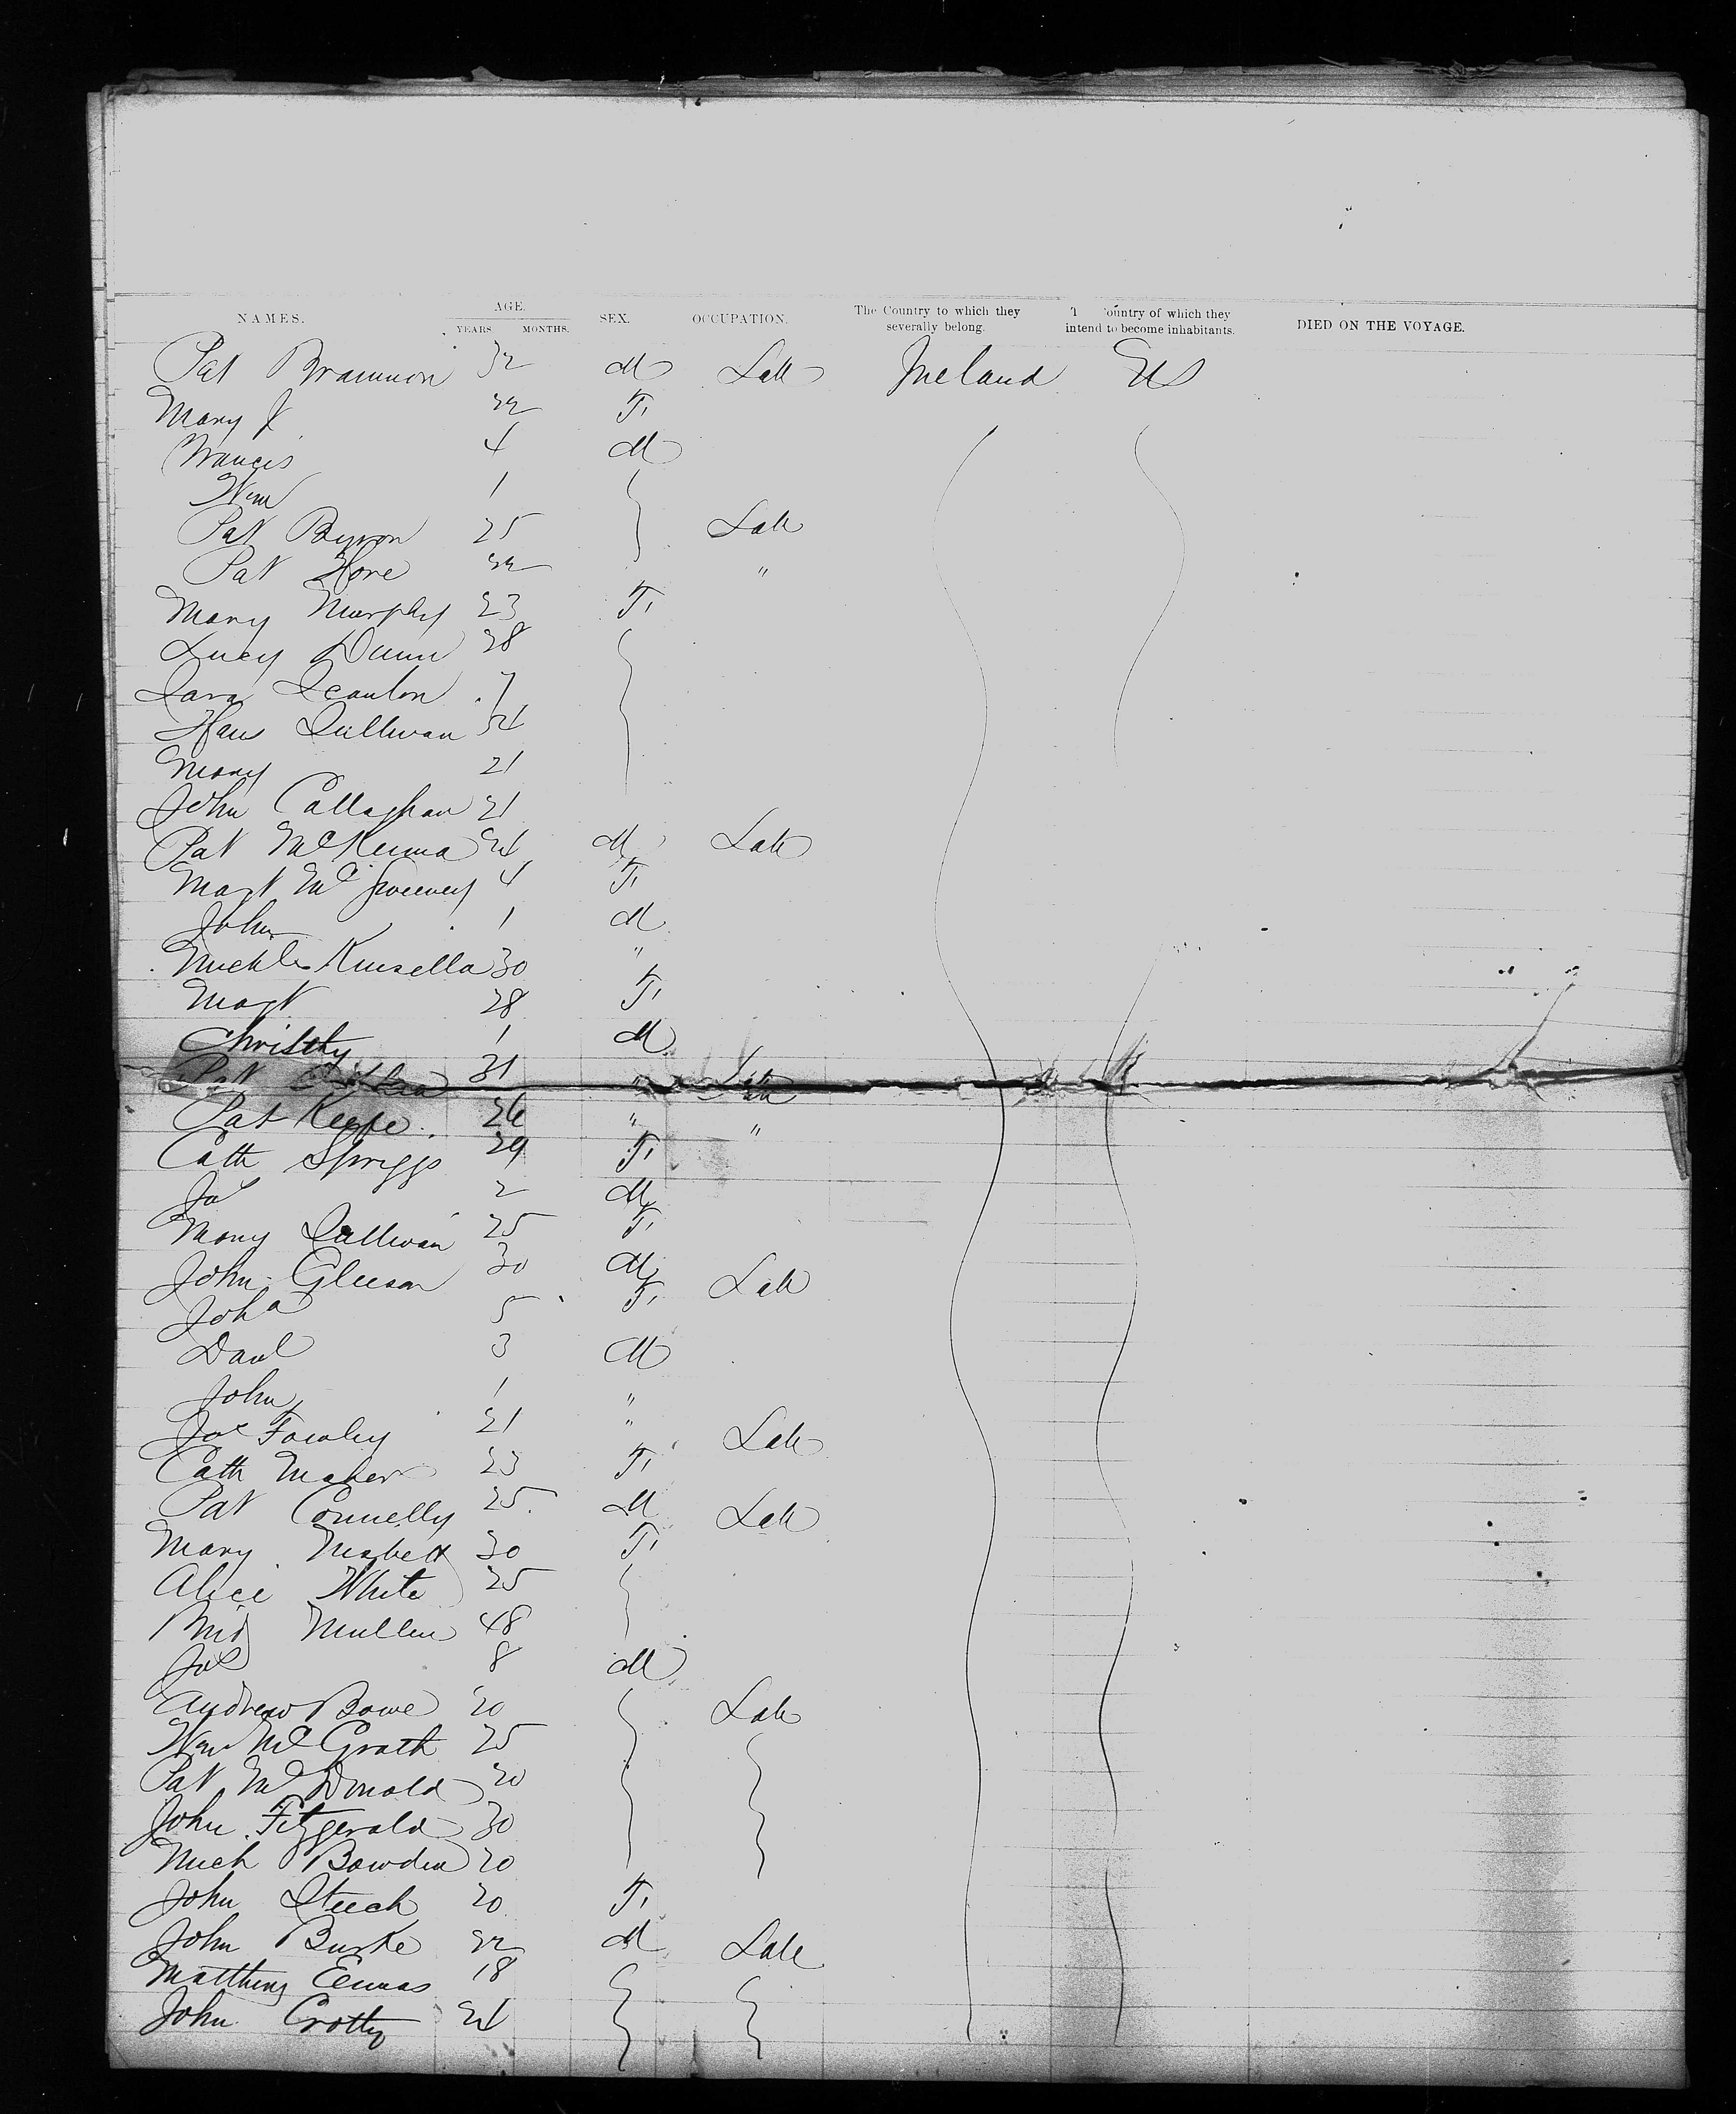 NAMES. AGE. YEARS. MONTHS. SEX. OCCUPATION. The Country to which they severally belong. T ountry of which they intend to become inhabitants. DIED ON THE VOYAGE.
Pat Brannon 32 M Lab Ireland US
Mary J 32 F
Francis 4 M
Wm 1
Pat Byron 25 Lab
Pat Hore 22 "
Mary Murphy 23 F
Lucy Dunn 28
Sara Scanlon 7
Hans Sullivan 54
Mary 21
John Callaghan 21
Pat McKenna 24 M Lab
Margt McSweeney 4 F
John 1 M
Michl Kinsella 30 "
Margt 28 F
Christly 1 M
Pat 31 " Lab
Pat Keefe 26 " "
Cath Spriggs 29 F
Jas 2 M
Mary Sullivan 25 F
John Gleeson 30 M Lab
Joha 5 F
Danl 3 M
John 1 "
Jas Fawley 21 " Lab
Cath Maher 23 F
Pat Connelly 25 M Lab
Mary Nesbett 30 F
Alice White 25
Brid Mullen 48
Jas 8 M
Andrew Bowe 20 Lab
Wm McGrath 25
Pat McDonald 20
John Fitzgerald 30
Mich Bowden 20
John Steech 20 F
John Burke 22 M Lab
Matthew 18
John Crotty 24